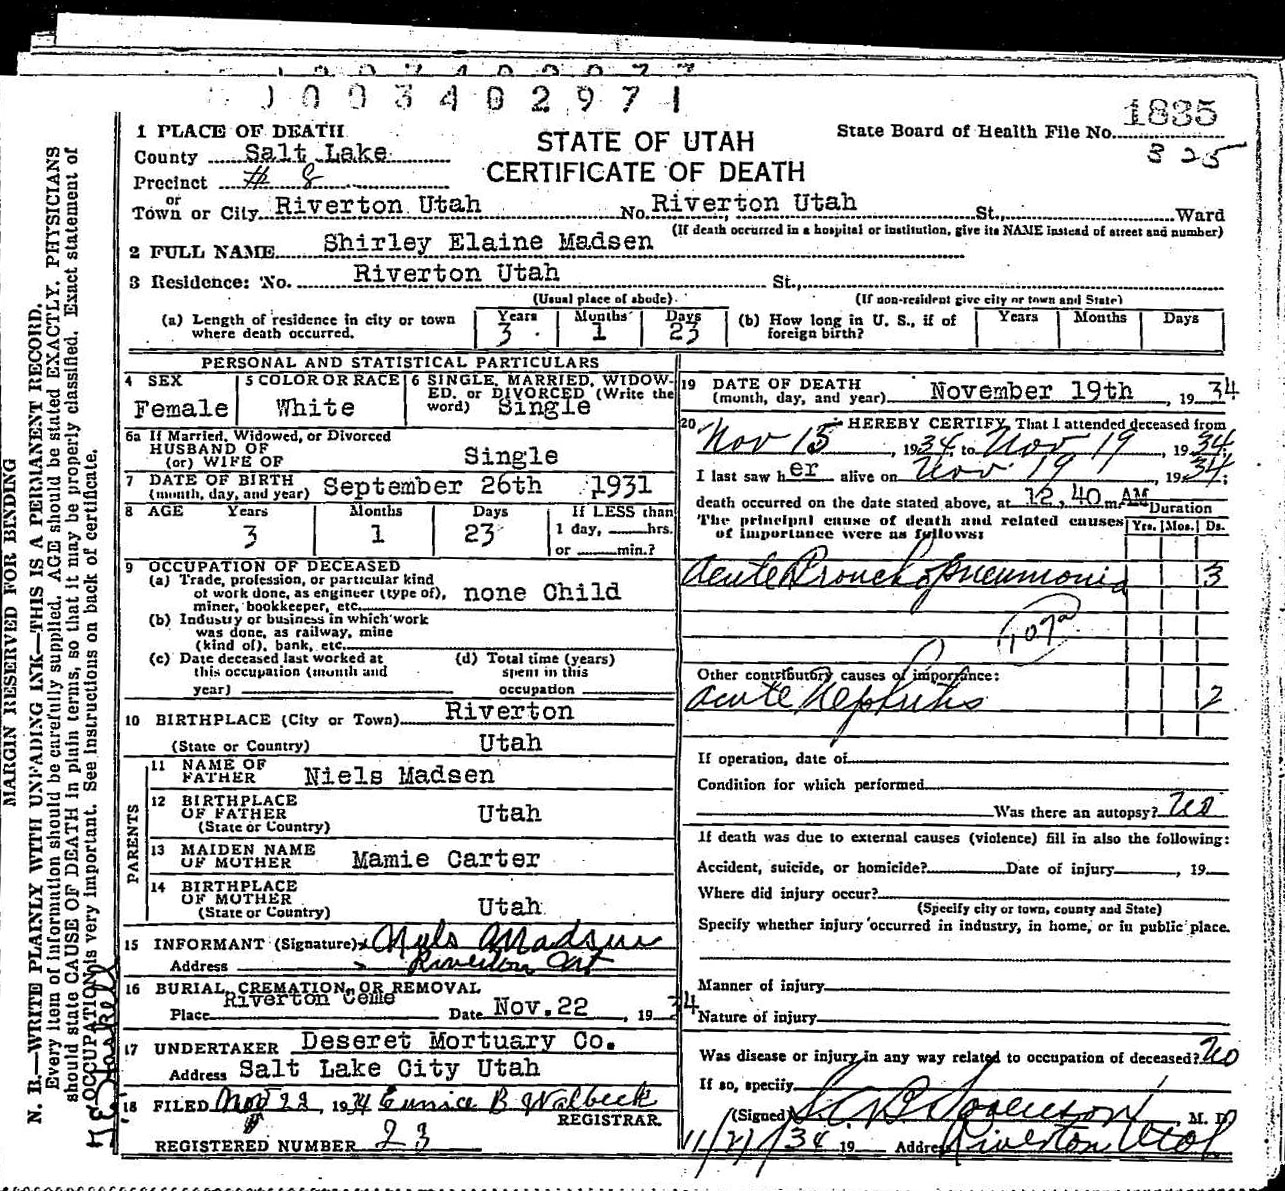 1003402971
1835
325
1 PLACE OF DEATH
County Salt Lake
Precinct # 8
or
Town or City Riverton Utah No. Riverton Utah St., Ward
STATE OF UTAH
CERTIFICATE OF DEATH
State Board of Health File No.
(If death occurred in a hospital or institution, give its NAME instead of street and number)
2 FULL NAME Shirley Elaine Madsen
3 Residence: No. Riverton Utah St.,
(Usual place of abode) (If non-resident give city or town and State)
(a) Length of residence in city or town where death occurred. Years 3 Months 1 Days 23
(b) How long in U. S., if of foreign birth? Years Months Days
PERSONAL AND STATISTICAL PARTICULARS
4 SEX Female
5 COLOR OR RACE White
6 SINGLE, MARRIED, WIDOWED, or DIVORCED (Write the word) Single
6a If Married, Widowed, or Divorced
HUSBAND OF
(or) WIFE OF Single
7 DATE OF BIRTH
(month, day, and year) September 26th 1931
8 AGE Years 3 Months 1 Days 23 If LESS than
1 day, hrs.
or min.?
9 OCCUPATION OF DECEASED
(a) Trade, profession, or particular kind
of work done, as engineer (type of), none Child
miner, bookkeeper, etc.
(b) Industry or business in which work
was done, as railway, mine
(kind of), bank, etc.
(c) Date deceased last worked at
this occupation (month and
year)
(d) Total time (years)
spent in this
occupation
10 BIRTHPLACE (City or Town) Riverton
(State or Country) Utah
PARENTS
11 NAME OF
FATHER Niels Madsen
12 BIRTHPLACE
OF FATHER Utah
(State or Country)
13 MAIDEN NAME
OF MOTHER Mamie Carter
14 BIRTHPLACE
OF MOTHER
(State or Country) Utah
15 INFORMANT (Signature) Nyls Madsen
Address Riverton Ut
16 BURIAL, CREMATION, OR REMOVAL
Place Riverton Ceme Date Nov. 22, 1934
17 UNDERTAKER Deseret Mortuary Co.
Address Salt Lake City Utah
18 FILED Nov 22, 1934 Eunice B Walbeck
REGISTRAR
REGISTERED NUMBER 23
19 DATE OF DEATH
(month, day, and year) November 19th, 1934
20 I HEREBY CERTIFY, That I attended deceased from
Nov 15, 1934, to Nov 19, 1934,
I last saw her alive on Nov. 19, 1934;
death occurred on the date stated above, at 12,40 m. AM
The principal cause of death and related causes
of importance were as follows:
Duration
Yrs. Mos. Ds.
Acute Broncho Pneumonia 3
107a
Other contributory causes of importance:
Acute Nephritis 2
If operation, date of
Condition for which performed
Was there an autopsy? No
If death was due to external causes (violence) fill in also the following:
Accident, suicide, or homicide? Date of injury, 19
Where did injury occur?
(Specify city or town, county and State)
Specify whether injury occurred in industry, in home, or in public place.
Manner of injury
Nature of injury
Was disease or injury in any way related to occupation of deceased? No
If so, specify
(Signed) Sorenson, M. D.
11/21/34 19 Address Riverton Utah
MARGIN RESERVED FOR BINDING
N. B.—WRITE PLAINLY WITH UNFADING INK—THIS IS A PERMANENT RECORD.
Every item of information should be carefully supplied. AGE should be stated EXACTLY. PHYSICIANS
should state CAUSE OF DEATH in plain terms, so that it may be properly classified. Exact statement of
OCCUPATION is very important. See instructions on back of certificate.